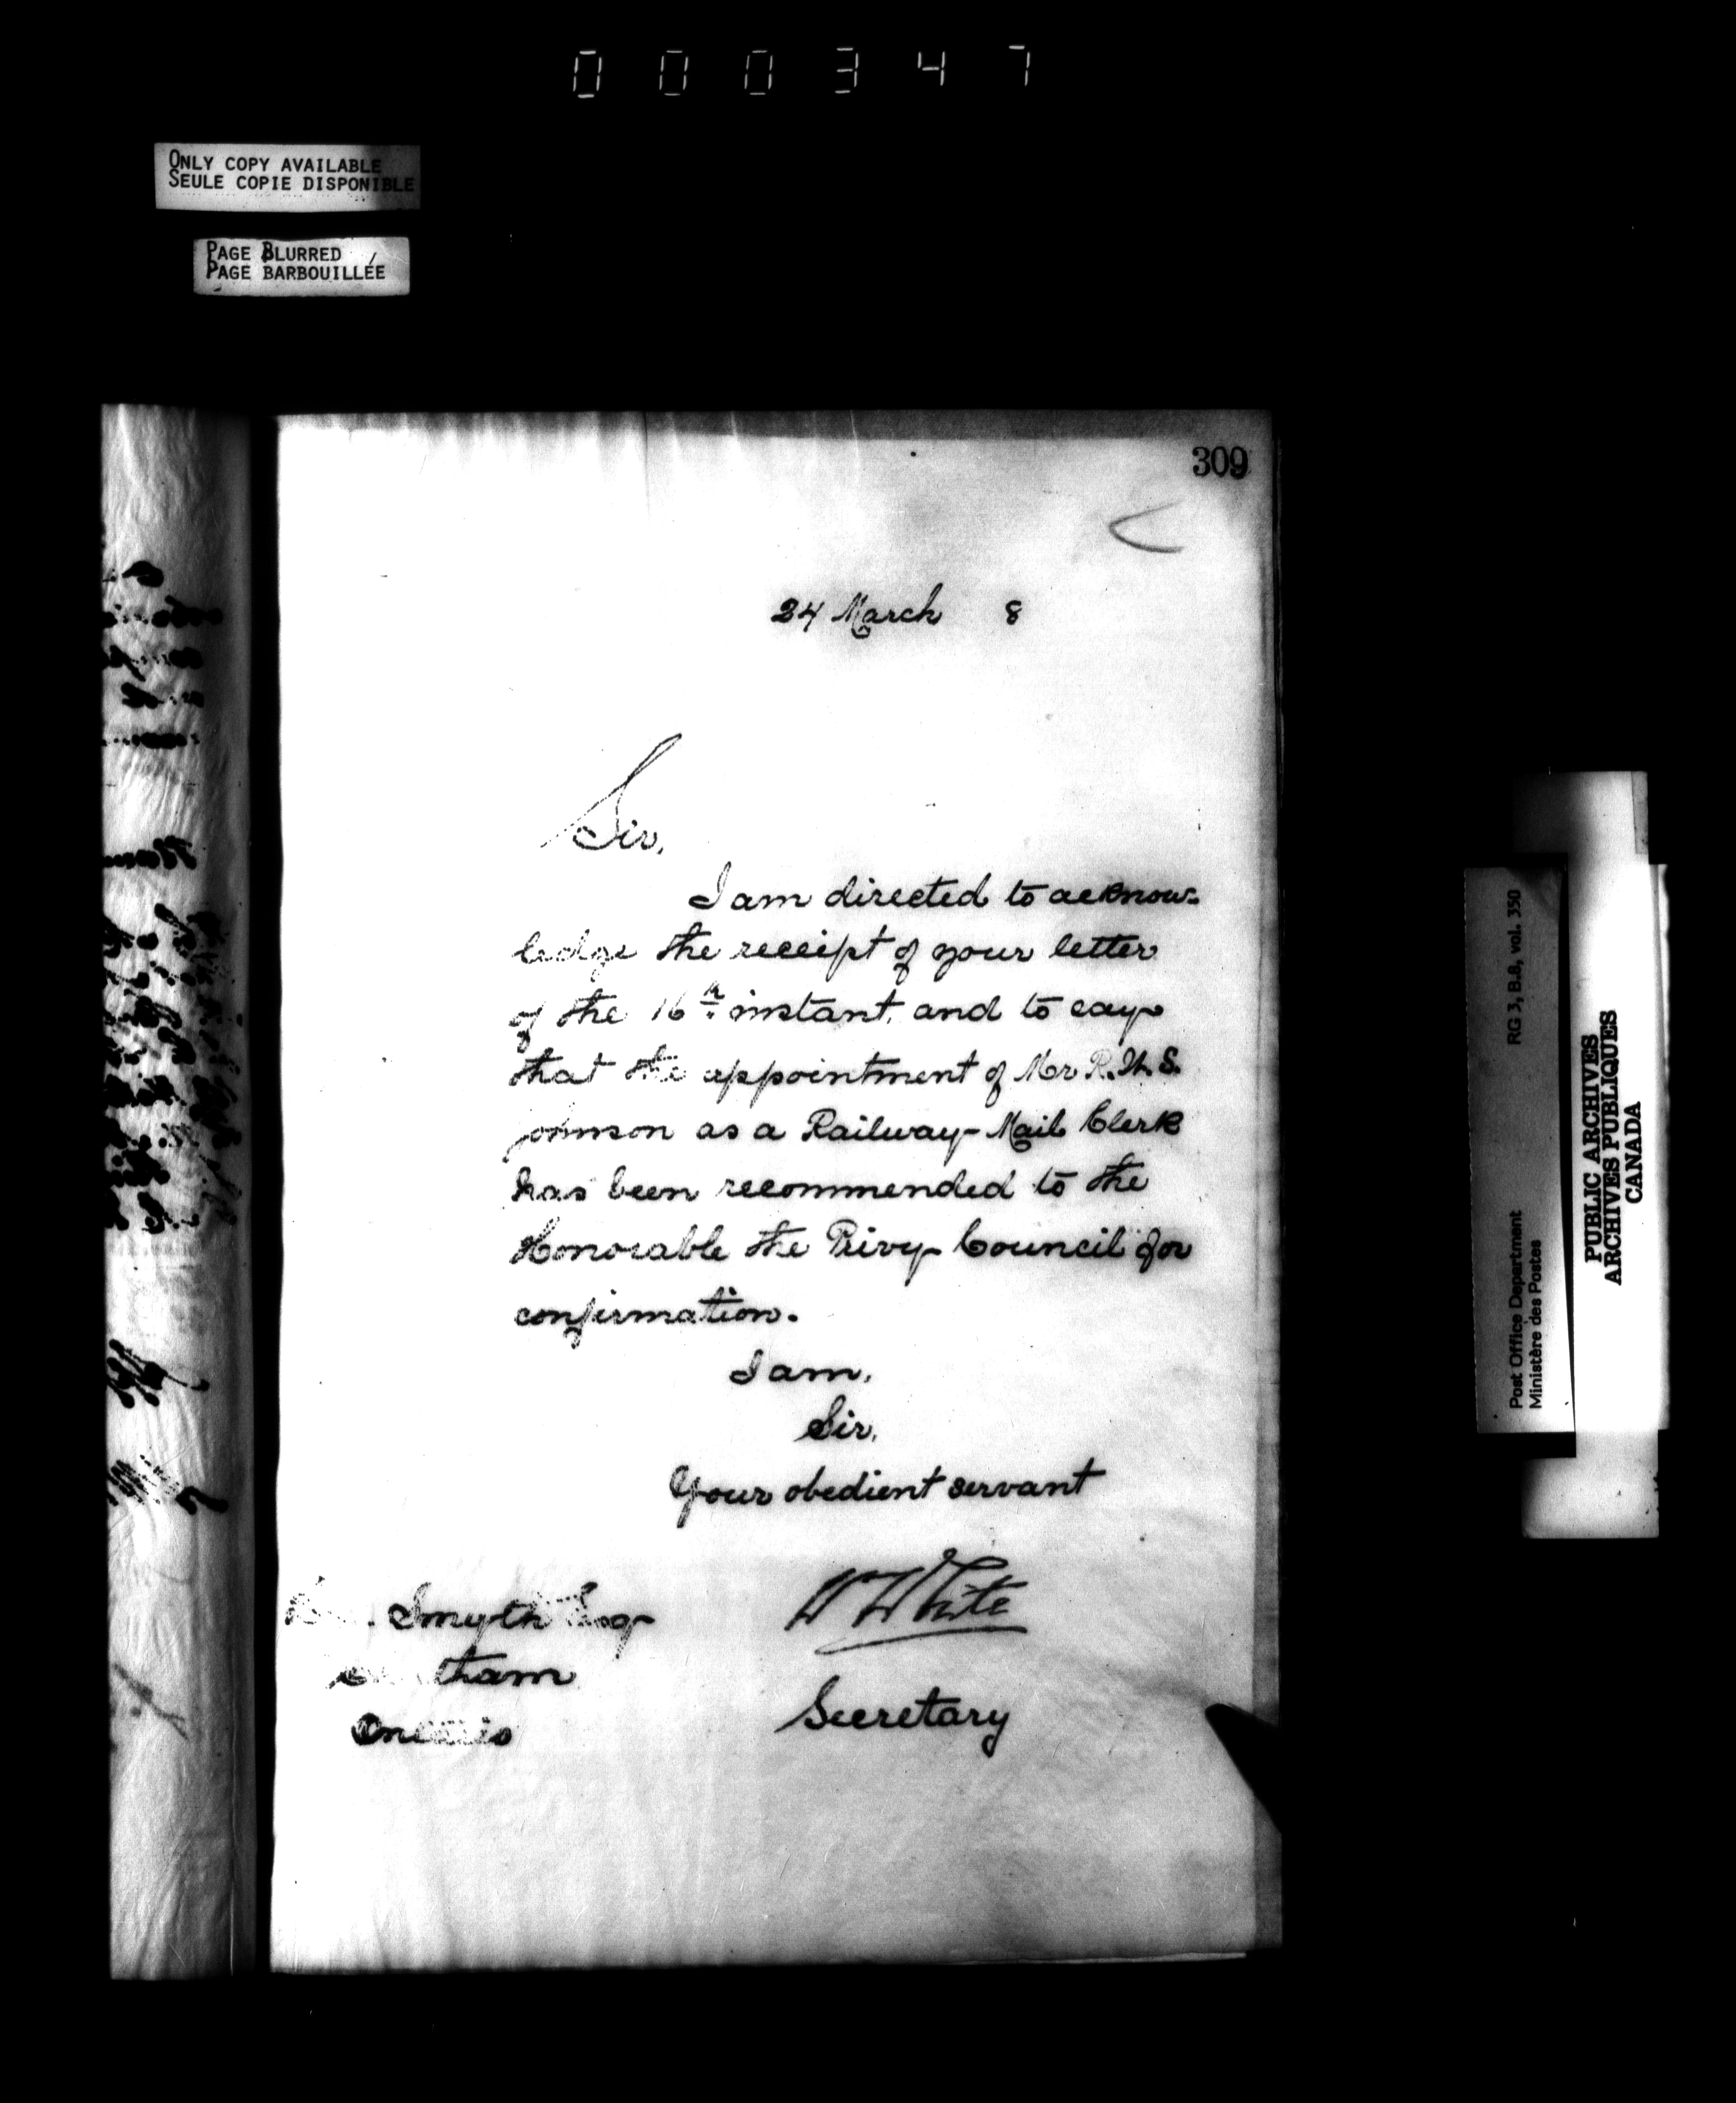 000347
ONLY COPY AVAILABLE
SEULE COPIE DISPONIBLE
PAGE BLURRED
PAGE BARBOUILLÉE
309
24 March 8
Sir,
I am directed to acknow-
ledge the receipt of your letter
of the 16th instant, and to say
that the appointment of Mr R. S.
Johnson as a Railway Mail Clerk
has been recommended to the
Honorable the Privy Council for
confirmation.
I am,
Sir,
Your obedient servant
W White
Secretary
Smyth Esq
Ontario
RG 3, B.8, vol. 350
Post Office Department
Ministère des Postes
PUBLIC ARCHIVES
ARCHIVES PUBLIQUES
CANADA